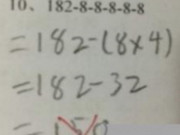 10、182-8-8-8-8-8
=182-(8×4)
=182-32
=150